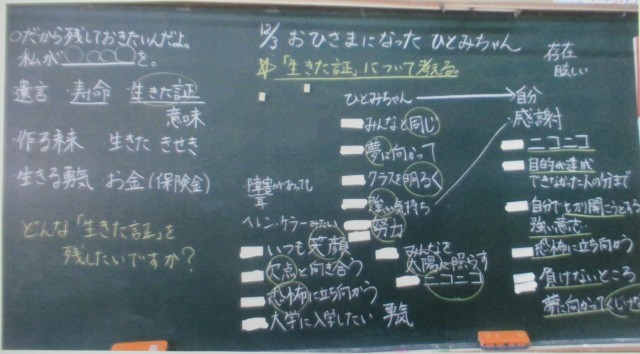 ○だから残しておきたいんだよ。
私が○○○○を。
遺言 寿命 生きた証
意味
作る未来 生きた きせき
生きる勇気 お金(保険金)
どんな「生きた証」を
残したいですか?
12/3 おひさまになった ひとみちゃん
「生きた証」について考える。
ひとみちゃん → 自分
存在
眩しい
みんなと同じ
夢に向かって
クラスを明るく
強い気持ち
努力
障害があっても
耳
ヘレン・ケラーみたい
いつも笑顔
欠点と向き合う
恐怖に立ち向かう
大学に入学したい
勇気
みんなを
太陽 照らす
ニコニコ
・感謝
ニコニコ
目的が達成
できなかった人の分まで
自分でも切り開こうとする
強い意志
恐怖に立ち向かう
負けないところ
夢に向かってくじけ